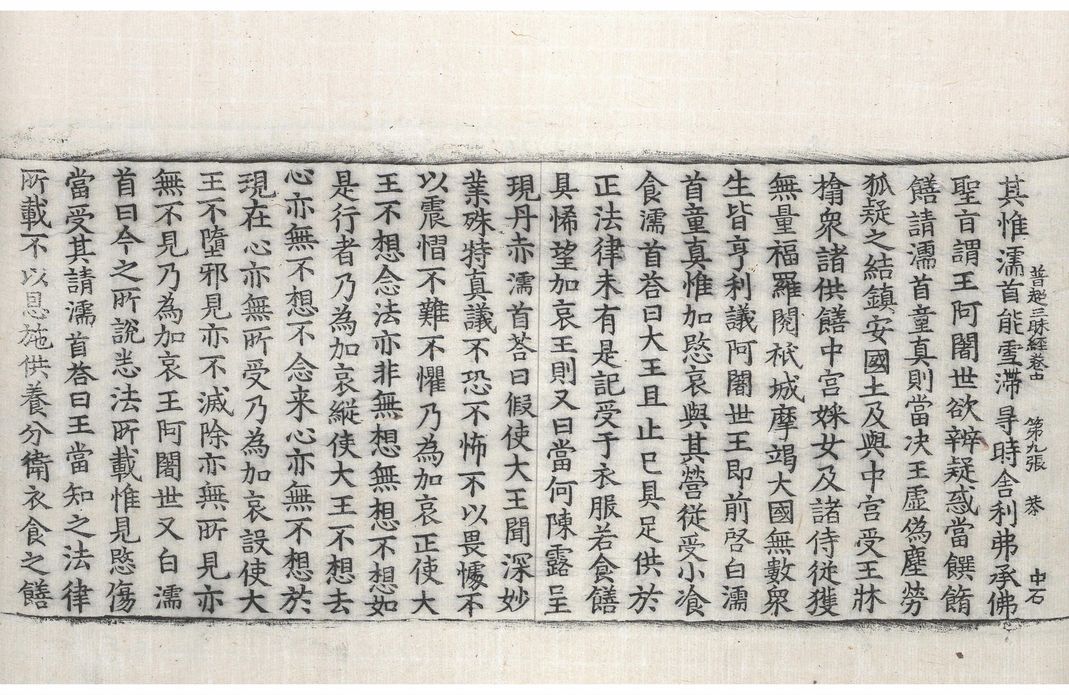 普超三昧經卷中 第九張 恭 中石
其惟濡首能雪滯㝷時舎利弗承佛
聖旨謂王阿闍世欲辨疑惑當饌餚
饍請濡首童真則當決王虛偽塵勞
狐疑之結鎮安國土及與中宫受王牀
搶衆諸供饍中宫婇女及諸侍従獲
無量福羅閱祇城摩竭大國無數衆
生皆亨利議阿闍世王即前啓白濡
首童真惟加愍哀與其營従受小飡
食濡首荅曰大王且止巳具足供於
正法律未有是記受于衣服若食饍
具悕望加哀王則又曰當何陳露呈
現丹赤濡首荅曰假使大王聞深妙
業殊特真議不恐不怖不以畏懅不
以震慴不難不懼乃為加哀正使大
王不想念法亦非無想無想不想如
是行者乃為加哀縱使大王不想去
心亦無不想不念来心亦無不想於
現在心亦無所受乃為加哀設使大
王不墮邪見亦不滅除亦無所見亦
無不見乃為加哀王阿闍世又白濡
首曰今之所說悉法所載惟見愍傷
當受其請濡首荅曰王當知之法律
所載不以恩施供養分衛衣食之饍